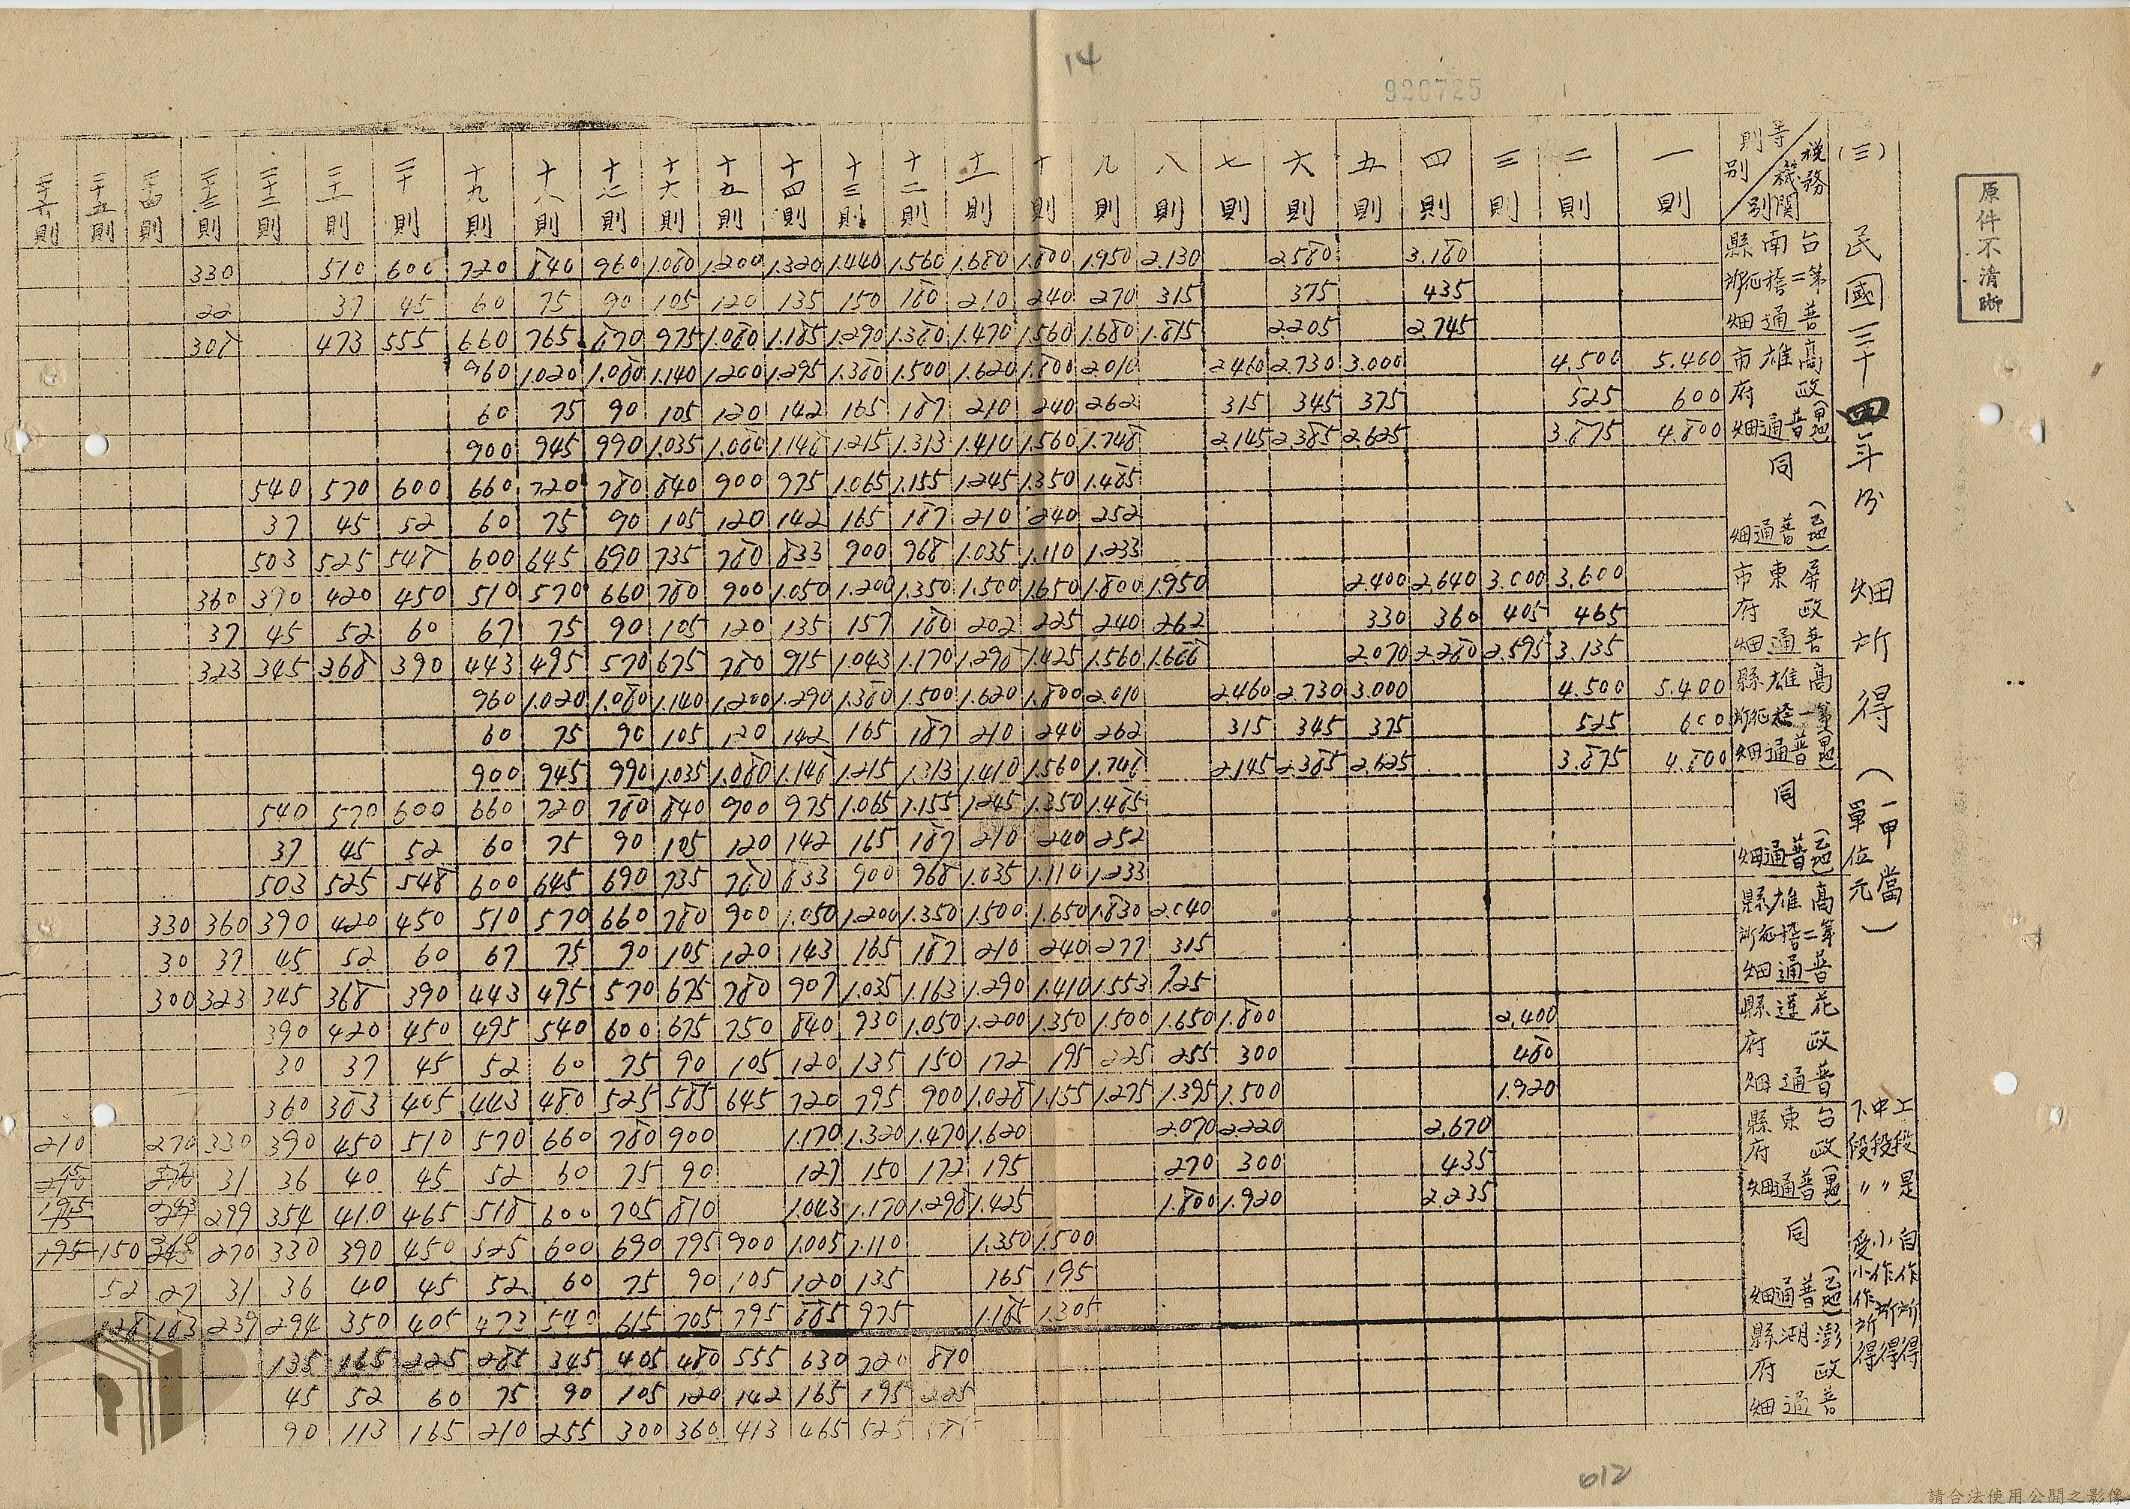 14
920725
原件不清晰
(三) 民國三十四年分畑所得(一甲當)單位元
上段是自作所得
中段〃小作所得
下段〃受小作所得
稅務機關別 等則別 一則 二則 三則 四則 五則 六則 七則 八則 九則 十則 十一則 十二則 十三則 十四則 十五則 十六則 十七則 十八則 十九則 二十則 二十一則 二十二則 二十三則 二十四則 二十五則 二十六則
台南縣 3.180 2.580 2.130 1.950 1.800 1.680 1.560 1.440 1.320 1.200 1.080 960 840 720 600 510 330
第二稽征所 435 375 315 270 240 210 180 150 135 120 105 90 75 60 45 37 22
普通畑 2.745 2.205 1.815 1.680 1.560 1.470 1.380 1.290 1.185 1.080 975 870 765 660 555 473 308
高雄市 5.400 4.500 3.000 2.730 2.460 2.010 1.800 1.620 1.500 1.380 1.295 1.200 1.140 1.080 1.020 960
政府 600 525 375 345 315 262 240 210 187 165 142 120 105 90 75 60
普通畑(甲地) 4.800 3.875 2.625 2.385 2.145 1.748 1.560 1.410 1.313 1.215 1.148 1.080 1.035 990 945 900
同 1.485 1.350 1.245 1.155 1.065 975 900 840 780 720 660 600 570 540
252 240 210 187 165 142 120 105 90 75 60 52 45 37
普通畑(乙地) 1.233 1.110 1.035 968 900 833 780 735 690 645 600 548 525 503
屏東市 3.600 3.000 2.640 2.400 1.950 1.800 1.650 1.500 1.350 1.200 1.050 900 780 660 570 510 450 420 390 360
政府 465 405 360 330 262 240 225 202 180 157 135 120 105 90 75 67 60 52 45 37
普通畑 3.135 2.595 2.280 2.070 1.688 1.560 1.425 1.298 1.170 1.043 915 780 675 570 495 443 390 368 345 323
高雄縣 5.400 4.500 3.000 2.730 2.460 2.010 1.800 1.620 1.500 1.380 1.290 1.200 1.140 1.080 1.020 960
第一稽征所 600 525 375 345 315 262 240 210 187 165 142 120 105 90 75 60
普通畑(甲地) 4.800 3.875 2.625 2.385 2.145 1.748 1.560 1.410 1.313 1.215 1.148 1.080 1.035 990 945 900
同 1.485 1.350 1.245 1.155 1.065 975 900 840 780 720 660 600 570 540
252 240 210 187 165 142 120 105 90 75 60 52 45 37
普通畑(乙地) 1.233 1.110 1.035 968 900 833 780 735 690 645 600 548 525 503
高雄縣 2.040 1.830 1.650 1.500 1.350 1.200 1.050 900 780 660 570 510 450 420 390 360 330
第二稽征所 315 277 240 210 187 165 143 120 105 90 75 67 60 52 45 37 30
普通畑 1.553 1.410 1.290 1.163 1.035 907 780 675 570 495 443 390 368 345 323 300
花蓮縣 2.400 1.800 1.650 1.500 1.350 1.200 1.050 930 840 750 675 600 540 495 450 420 390
政府 480 300 255 225 195 172 150 135 120 105 90 75 60 52 45 37 30
普通畑 1.920 1.500 1.395 1.275 1.155 1.028 900 795 720 645 585 525 480 443 405 383 360
台東縣 2.670 2.220 2.070 1.620 1.470 1.320 1.170 900 780 660 570 510 450 390 330 270 210
政府 435 300 270 195 172 150 127 90 75 60 52 45 40 36 31
普通畑(甲地) 2.235 1.920 1.800 1.425 1.298 1.170 1.043 810 705 600 518 465 410 354 299
同 1.500 1.350 1.110 1.005 900 795 690 600 525 450 390 330 270 150 195
195 165 135 120 105 90 75 60 52 45 40 36 31 27 52
普通畑(乙地) 1.305 1.185 975 885 795 705 615 540 473 405 350 294 239 183 128
澎湖縣 810 720 630 555 480 405 345 285 225 165 135
政府 225 195 165 142 120 105 90 75 60 52 45
普通畑 585 525 465 413 360 300 255 210 165 113 90
012
請合法使用公開之影像